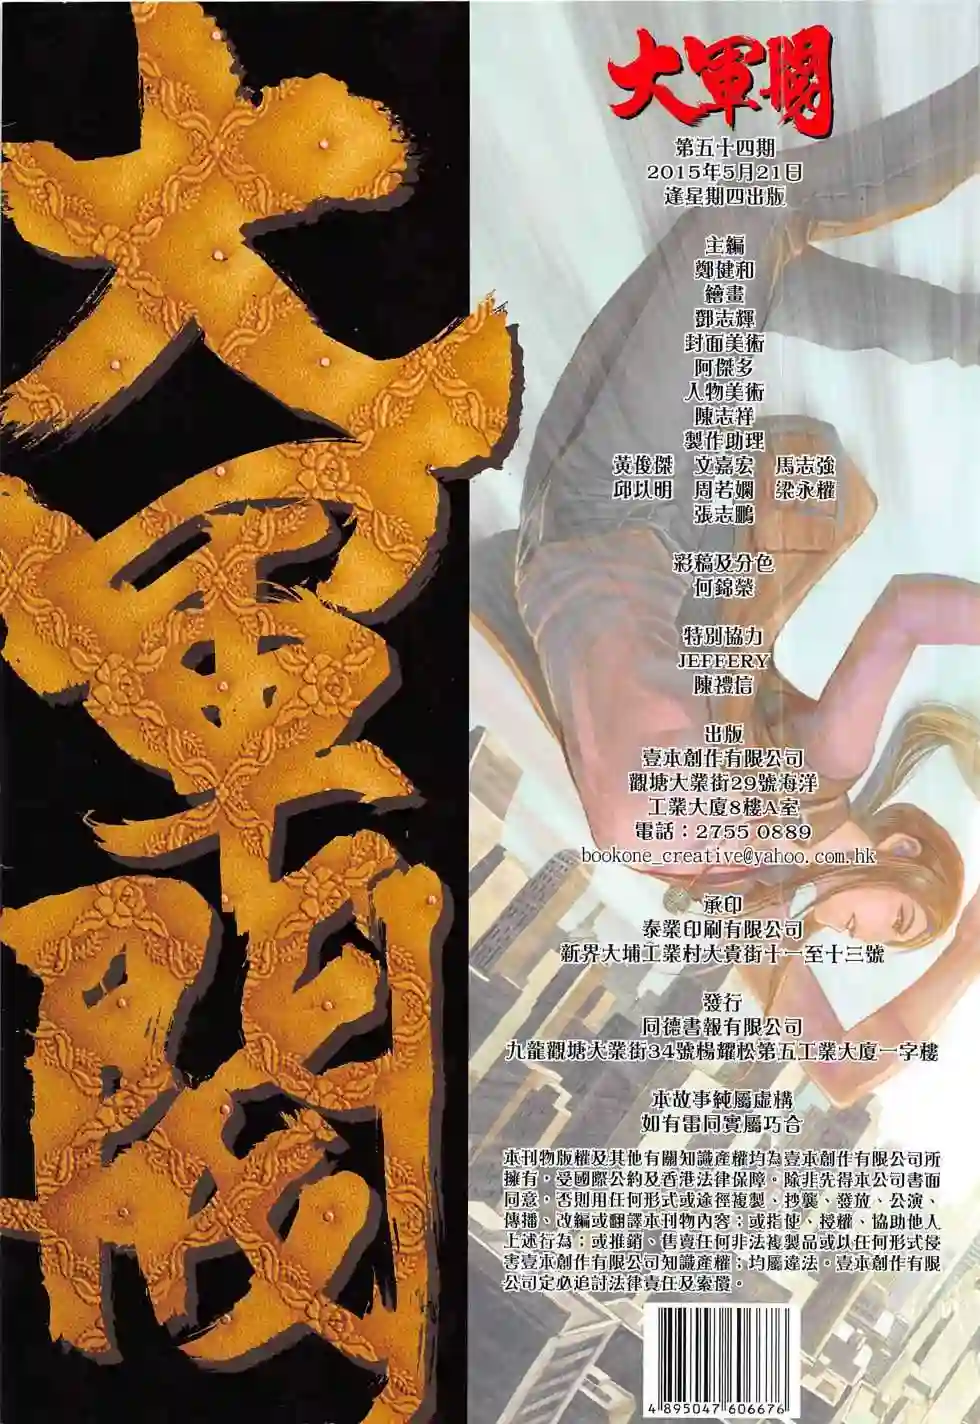 大軍閥
大軍閥
第五十四期
2015年5月21日
逢星期四出版
主編
鄭健和
繪畫
鄧志輝
封面美術
阿傑多
人物美術
陳志祥
製作助理
黃俊傑 文嘉宏 馬志強
邱以明 周若嫻 梁永權
張志鵬
彩稿及分色
何錦榮
特別協力
JEFFERY
陳禮信
出版
壹本創作有限公司
觀塘大業街29號海洋
工業大廈8樓A室
電話：2755 0889
bookone_creative@yahoo.com.hk
承印
泰業印刷有限公司
新界大埔工業村大貴街十一至十三號
發行
同德書報有限公司
九龍觀塘大業街34號楊耀松第五工業大廈一字樓
本故事純屬虛構
如有雷同實屬巧合
本刊物版權及其他有關知識產權均為壹本創作有限公司所
擁有，受國際公約及香港法律保障。除非先得本公司書面
同意，否則用任何形式或途徑複製、抄襲、發放、公演、
傳播、改編或翻譯本刊物內容；或指使、授權、協助他人
上述行為；或推銷、售賣任何非法複製品或以任何形式侵
害壹本創作有限公司知識產權；均屬違法。壹本創作有限
公司定必追討法律責任及索償。
4 895047 606676